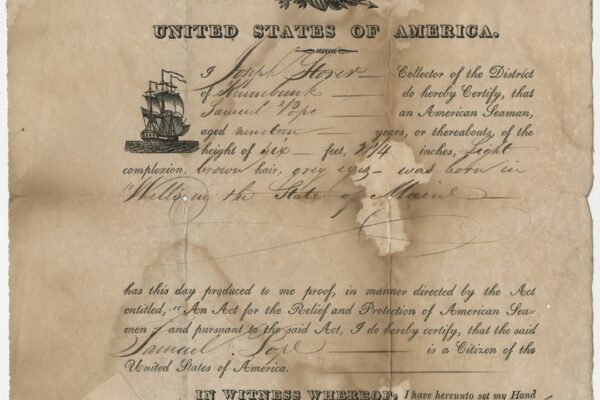 UNITED STATES OF AMERICA.
I Joseph Storer Collector of the District
of Kennebunk do hereby Certify, that
Samuel Pope an American Seaman,
aged nineteen years, or thereabouts, of the
height of six feet, 2 1/4 inches, light
complexion, brown hair, grey eyes was born in
Wells in the State of Maine
has this day produced to me proof, in manner directed by the Act
entitled, "An Act for the Relief and Protection of American Sea-
men" and pursuant to the said Act, I do hereby certify, that the said
Samuel Pope is a Citizen of the
United States of America.
IN WITNESS WHEREOF, I have hereunto set my Hand